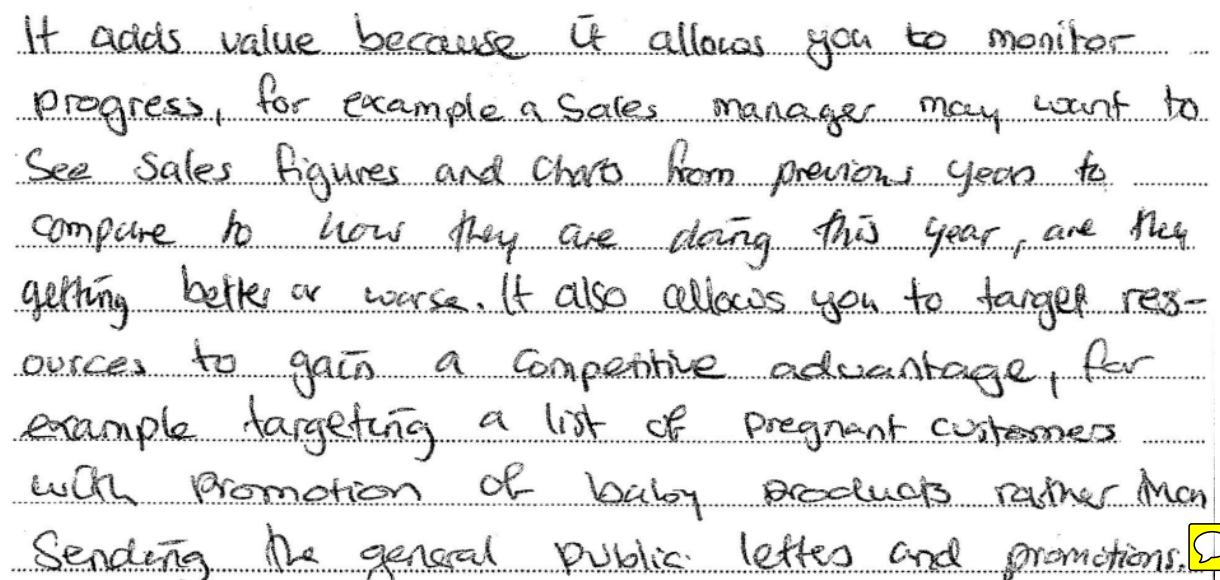 It adds value because it allows you to monitor
progress, for example a Sales manager may want to
See sales figures and charts from previous years to
compare to how they are doing this year, are they
getting better or worse. It also allows you to target res-
ources to gain a competitive advantage, for
example targeting a list of pregnant customers
with promotion of baby products rather than
Sending the general public letters and promotions.